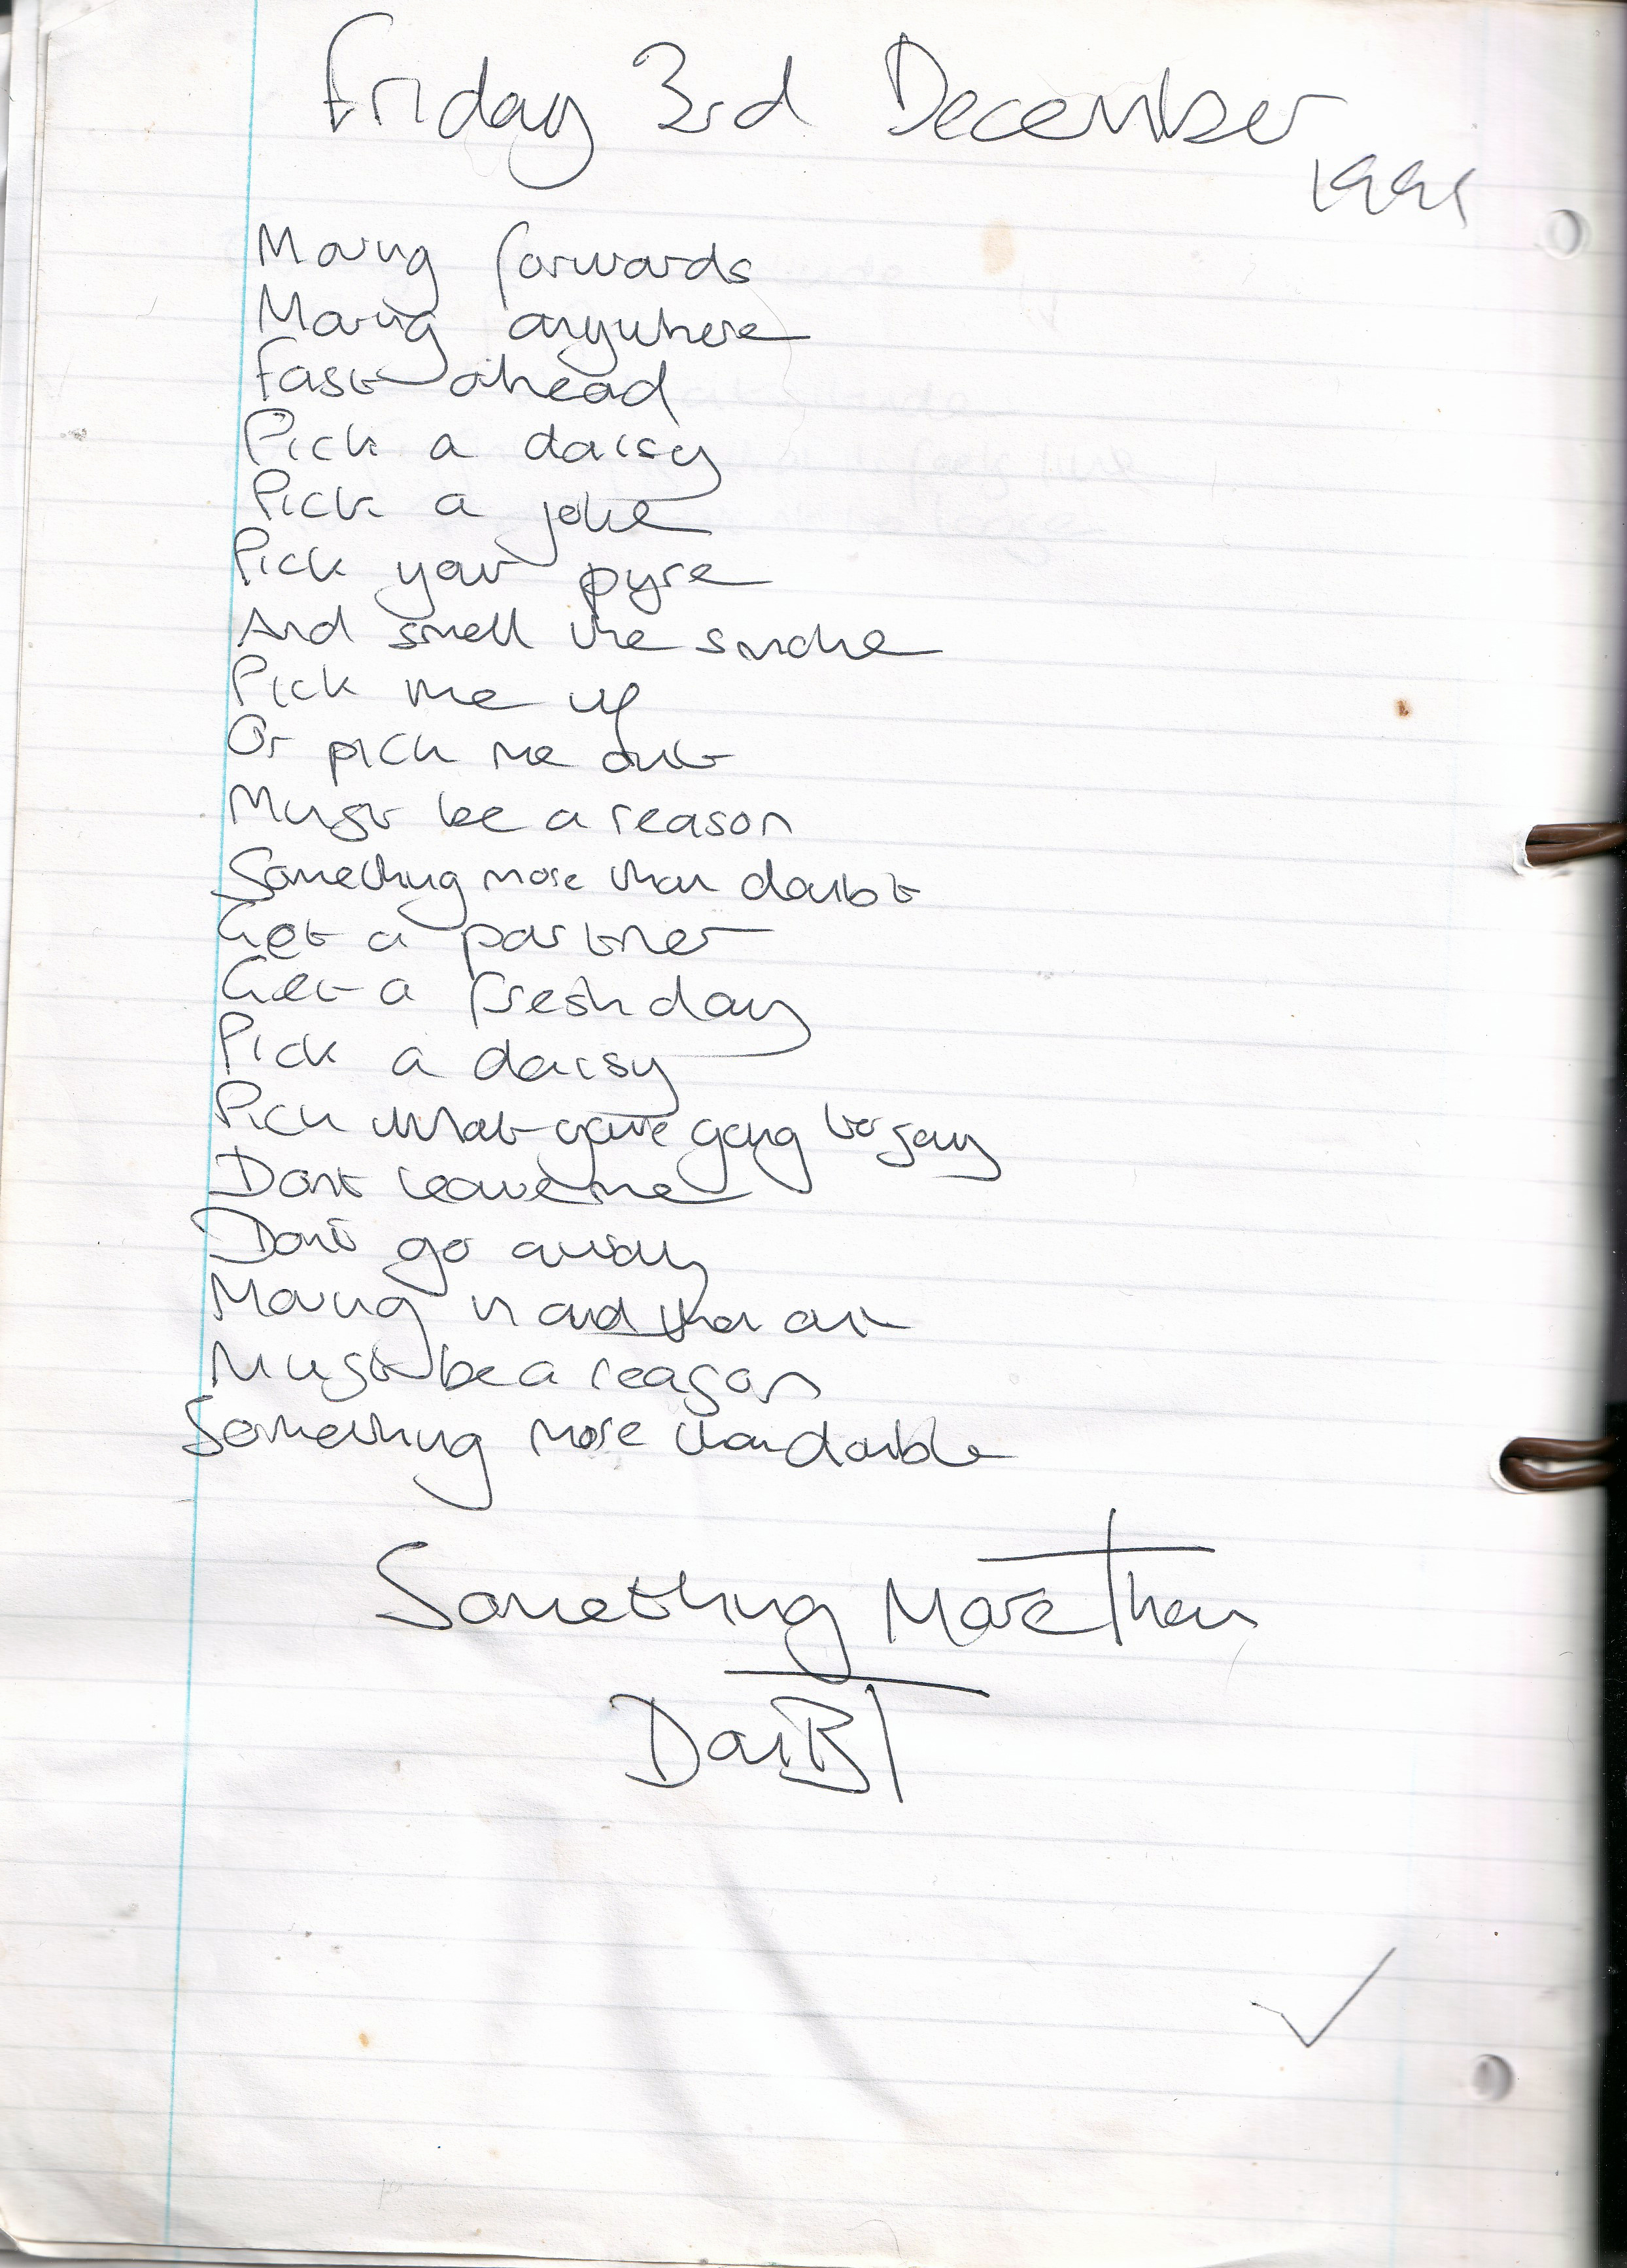 Friday 3rd December
Moving forwards
Moving anywhere
Fast ahead
Pick a daisy
Pick a joke
Pick your pyre
And smell the smoke
Pick me up
Or pick me out
Must be a reason
Something more than doubt
Get a partner
Get a fresh day
Pick a daisy
Pick what youre going to say
Dont leave me
Dont go away
Moving in and then out
Must be a reason
Something more than double
Something More Than
DouBT